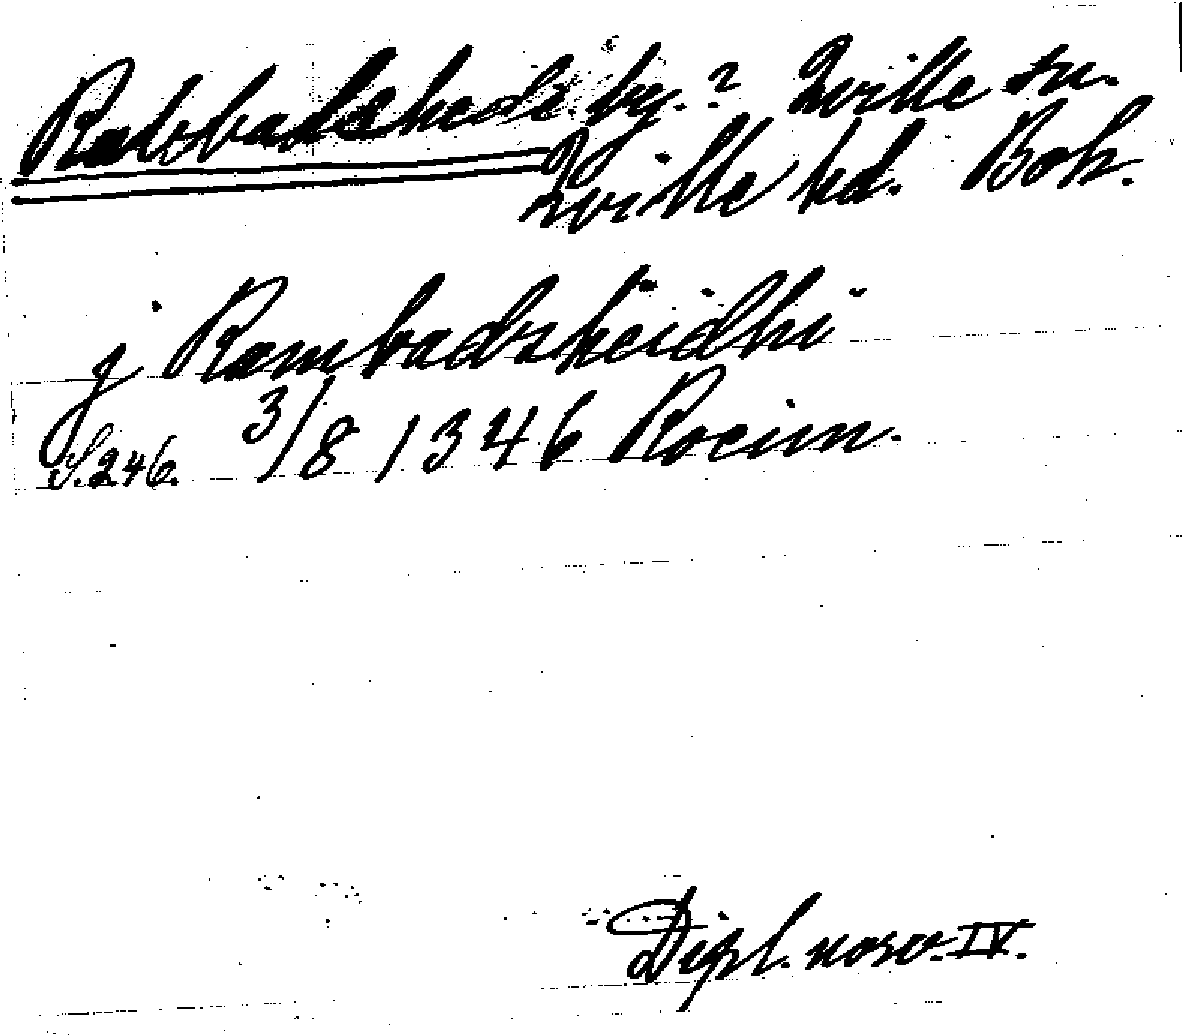 Rabbalshede by.? Qville sn.
Qville hd. Boh.
j Rambadsheidhi
S. 246. 3/8 1346 Rocim.
Dipl. norv. IV.